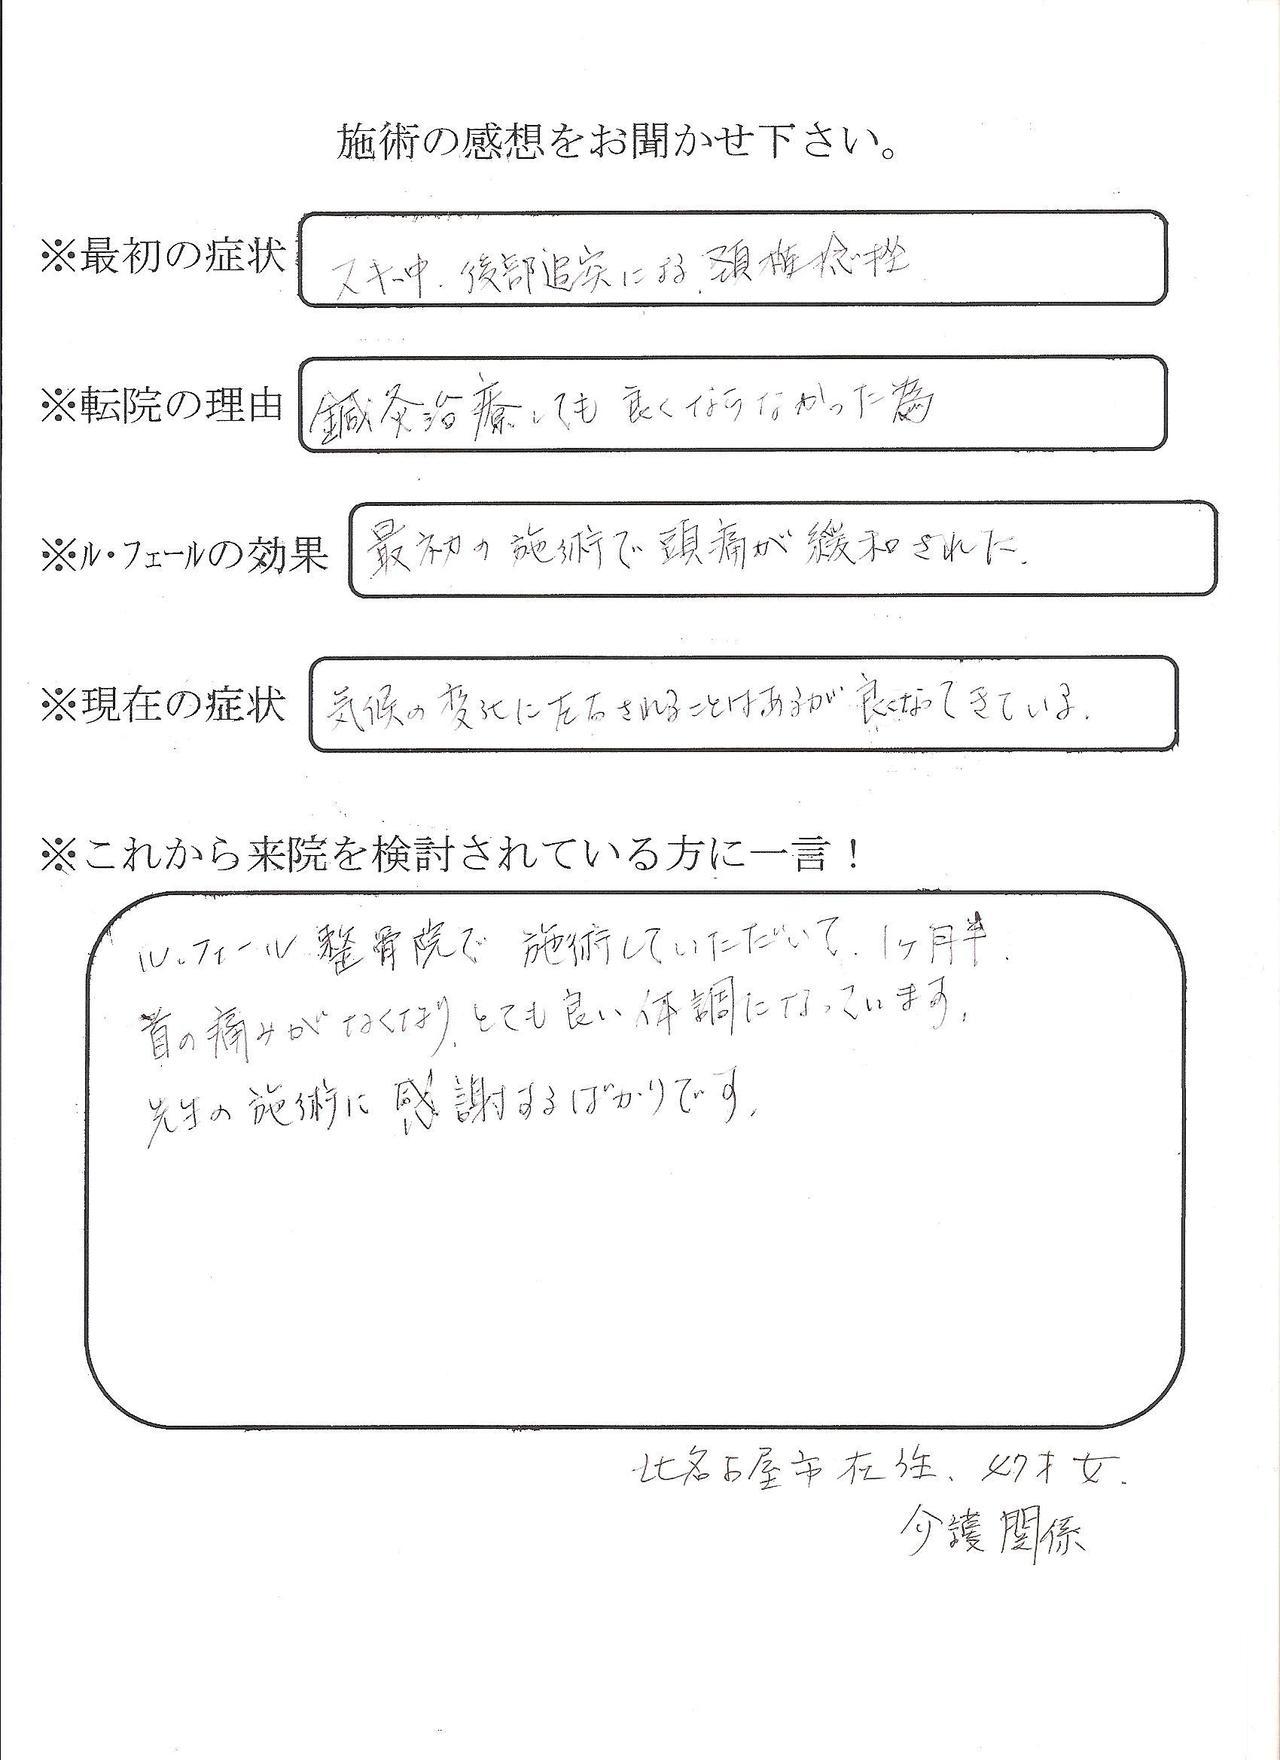 施術の感想をお聞かせ下さい。
※最初の症状
スキー中、後部追突による、頚椎捻挫
※転院の理由
鍼灸治療しても良くならなかった為
※ル・フェールの効果
最初の施術で頭痛が緩和された.
※現在の症状
気候の変化に左右されることはあるが良くなってきている.
※これから来院を検討されている方に一言！
ル・フェール整骨院で施術していただいて、1ヶ月半.
首の痛みがなくなり、とても良い体調になっています。
先生の施術に感謝するばかりです。
北名古屋市在住、47才女.
介護関係